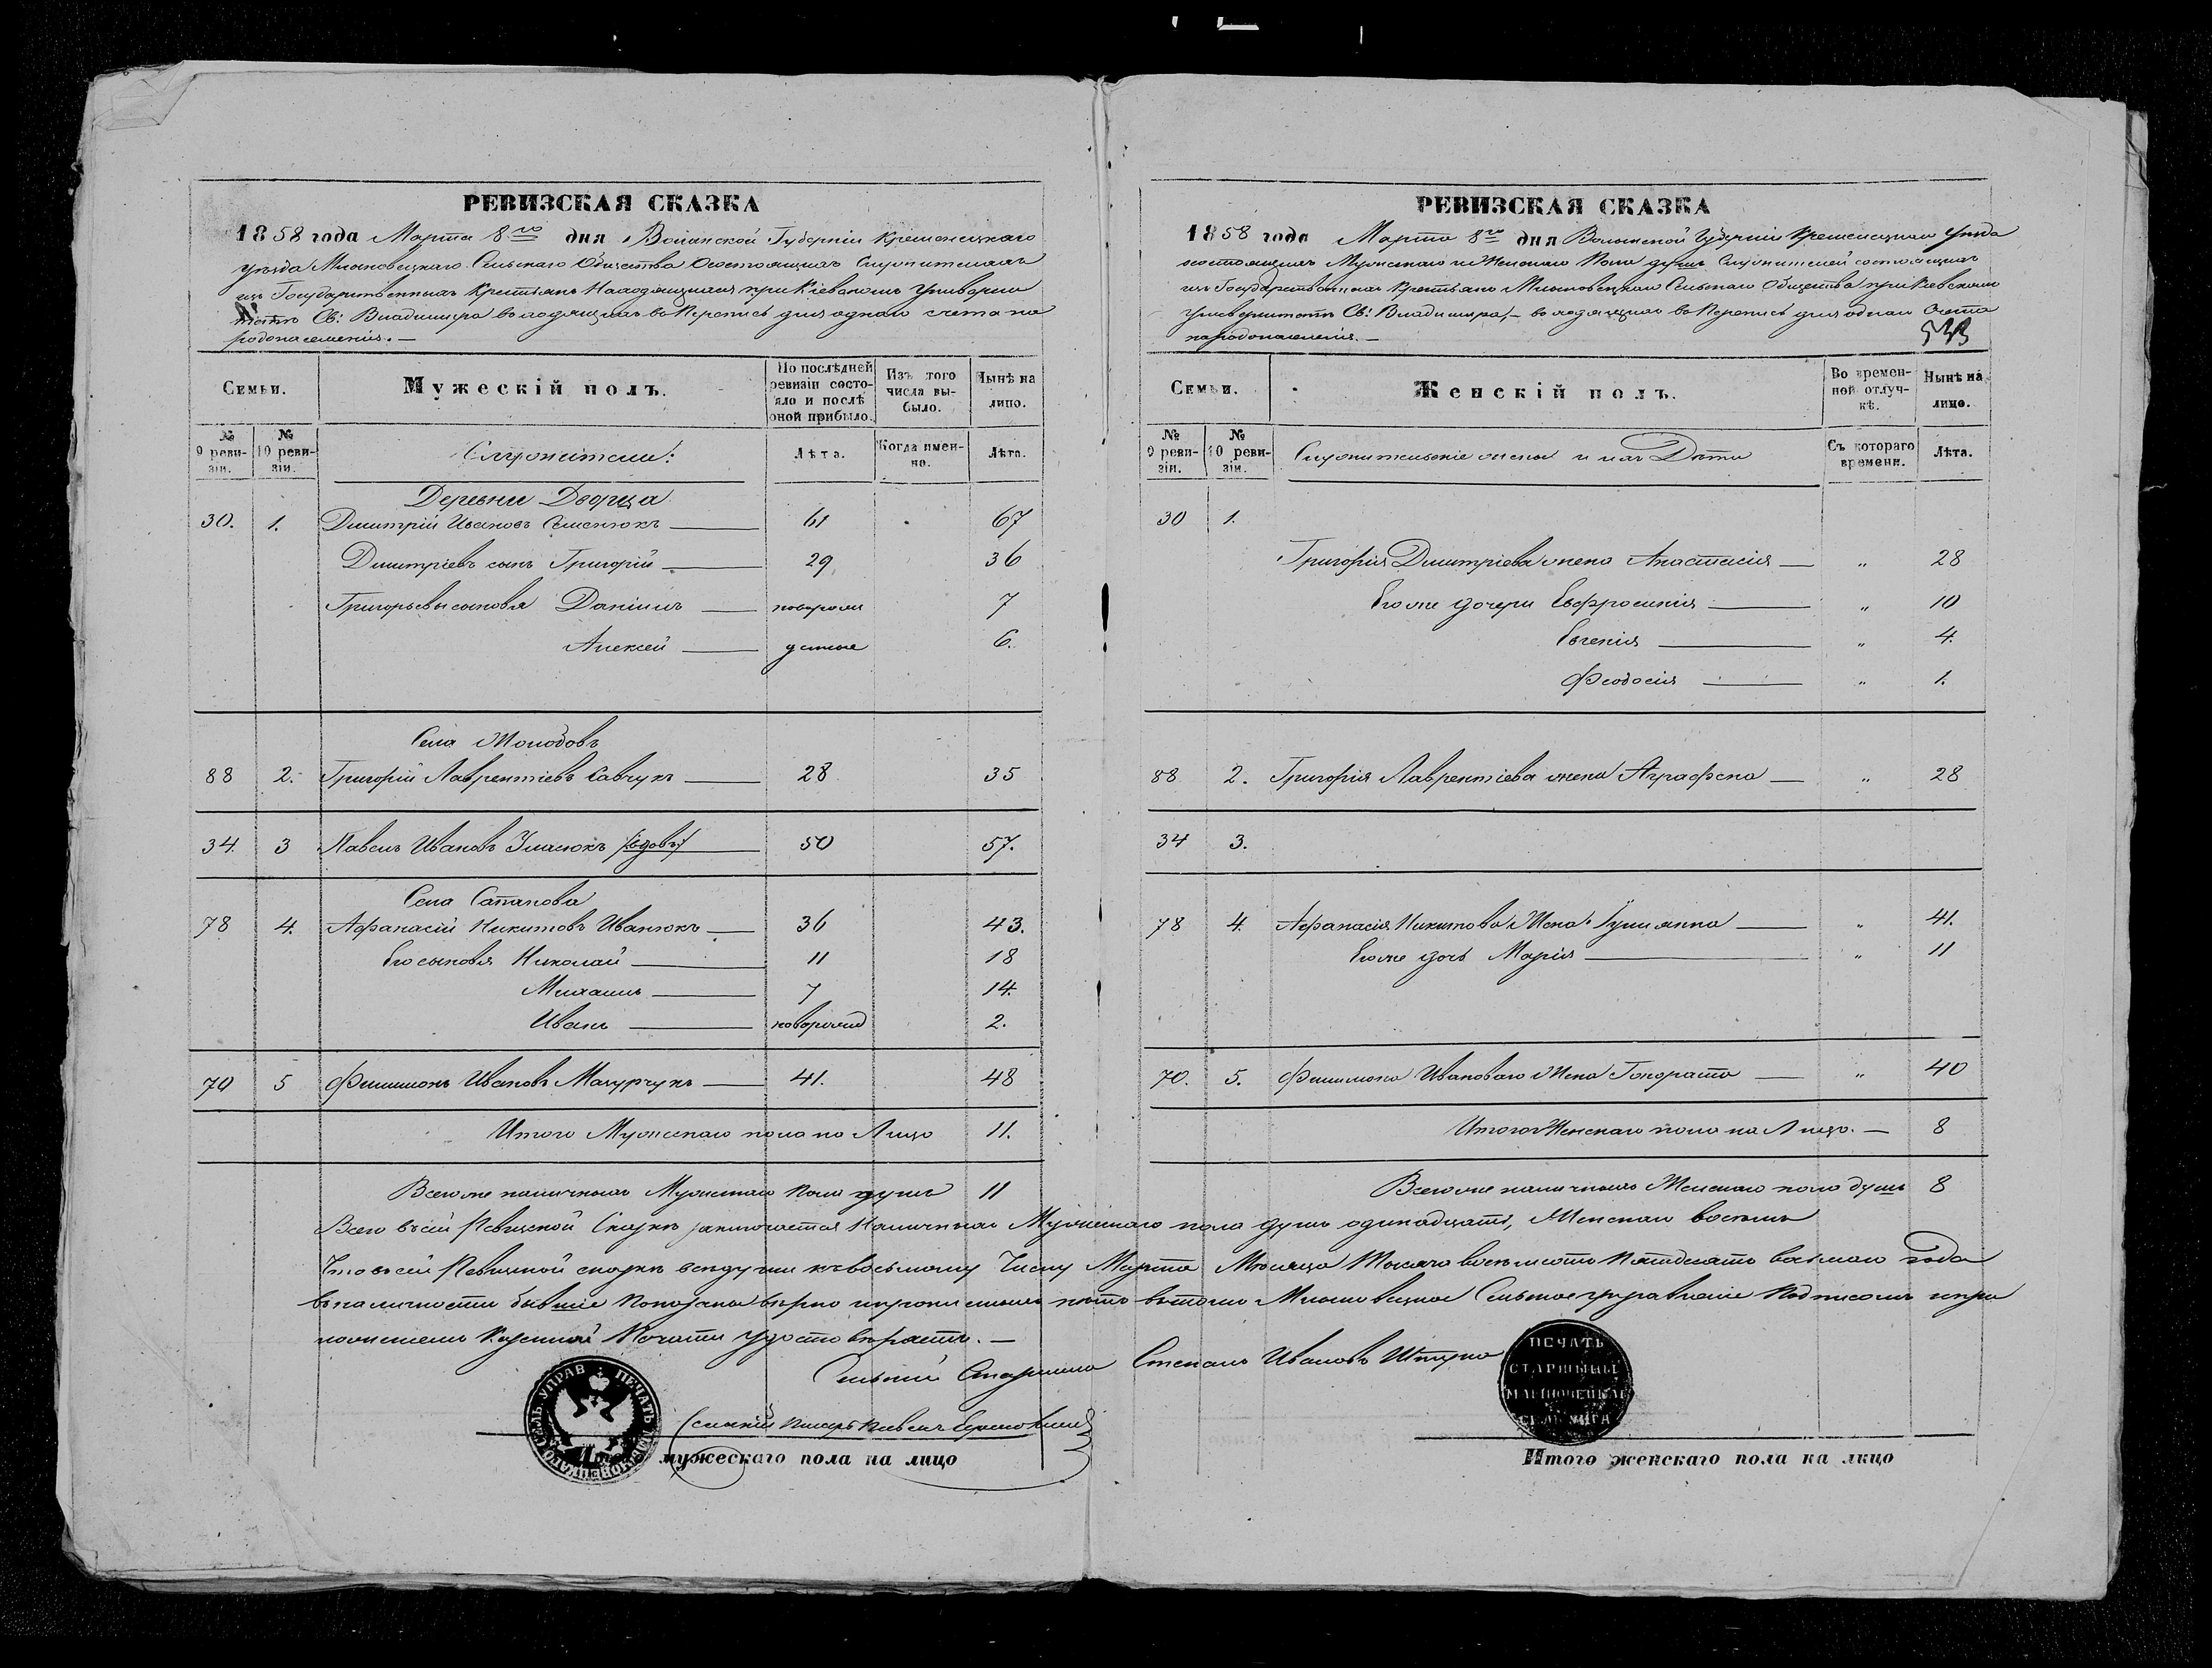 РЕВИЗСКАЯ СКАЗКА
1858 года Марта 8го дня Волынской Губерніи Кременецкаго
уѣзда Мильновецкаго Сельскаго Общества о состоящихъ Служителяхъ
изъ Государственныхъ Крестьянъ находящихся при Кіевскомъ Универси
тетѣ Св: Владимира входящихъ въ Перепись для однаго счета на
родонаселенія. —
Семьи.
Мужескій полъ.
По послѣдней ревизіи состояло и послѣ оной прибыло.
Изъ того числа выбыло.
Нынѣ на лицо.
№ 9 ревизіи.
№ 10 ревизіи.
Служители:
Лѣта.
Когда именно.
Лѣта.
Деревни Дворца
30. 1. Димитрій Ивановъ Семенюкъ — 61 67
Димитріевъ сынъ Григорій — 29 36
Григорьевы сыновья Даніилъ — новорож 7
Алексей — денные 6.
Села Молодовъ
88 2. Григорій Лаврентіевъ Савчукъ — 28 35
34. 3 Павелъ Ивановъ /вдовъ/ — 50 57.
Села Сапанова
78 4. Афанасій Никитовъ Иванюкъ — 36 43.
Его сыновья Николай — 11 18
Михаилъ — 7 14.
Иванъ — новорожд 2.
70 5 Филимонъ Ивановъ Мазурчукъ — 41. 48
Итого Мужескаго пола на Лицо 11.
Всего же наличныхъ Мужескаго пола душъ 11
РЕВИЗСКАЯ СКАЗКА
1858 года Марта 8го дня Волынской Губерніи Кременецкаго Уѣзда
состоящихъ Мужескаго и Женскаго Пола душъ Служителей состоящихъ
изъ Государственныхъ Крестьянъ Мильновецкаго Сельскаго Общества при Кіевскомъ
Университетѣ Св: Владимира, — входящихъ въ Перепись для однаго счета
народонаселенія. —
533
Семьи.
Женскій полъ.
Во временной отлучкѣ.
Нынѣ на лицо.
№ 9 ревизіи.
№ 10 ревизіи.
Служительскіе жены и ихъ Дѣти
Съ котораго времени.
Лѣта.
30 1.
Григорія Димитріева жена Анастасія — " 28
Его же дочери Евфросинія — " 10
Евгенія — " 4.
Феодосія — " 1.
88 2. Григорія Лаврентіева жена Аграфена — " 28
34 3.
78 4. Афанасія Никитова Жена Іулианна — " 41.
Его же дочь Марія — " 11
70. 5. Филимона Иванова Жена — " 40
Итого Женскаго пола на Лицо. — 8
Всего же наличныхъ Женскаго пола душъ 8
Всего въ сей Ревизской Сказкѣ заключается Наличныхъ Мужескаго пола душъ одинадцать, Женскаго восемь
Что въ сей Ревизской сказкѣ всѣ души къ восьмому Числу Марта Мѣсяца Тысяча восемьсотъ Пятдесятъ восьмаго года
въ наличности бывшіе Показаны вѣрно и прописныхъ нѣтъ въ томъ Мильновецкое Сельское Управленіе Подписомъ и при
ложеніемъ Казенной Печати удостовѣряетъ. —
Сельскій Старшина Степанъ Ивановъ
Сельскій Писарь Павелъ
ПЕЧАТЬ
СЕЛЬ УПРАВ
ПЕЧАТЬ
СТАРШИНЫ
Итого мужескаго пола на лицо
Итого женскаго пола на лицо